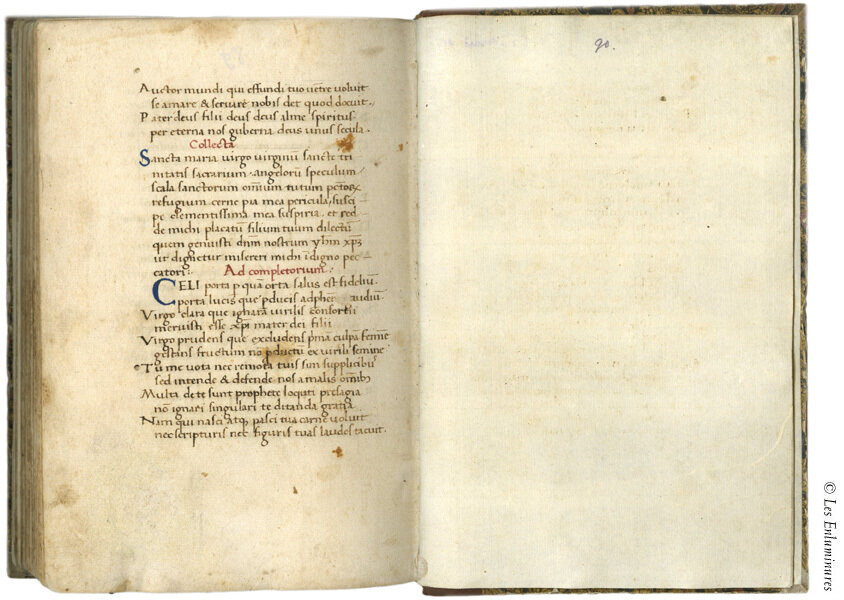 Auctor mundi qui effundi tuo uētre uoluit
se amare & seruare nobis det quod docuit.
Pater deus filii deus deus alme spiritus
per eterna nos guberna deus unus secula.
Collecta
Sancta maria uirgo uirginū sancte tri
nitatis sacrarium. angelorū speculum
scala sanctorum omīum tutum pctoꝝ
refugium cerne pia mea pericula, susci
pe clementissima mea suspiria. et red
de michi placatū filium tuum dilectū
quem genuisti dnm nostrum yhm xp̄m
ut dignetur misereri michi īdigno pec
catori.
Ad completorium.
CELI porta p quā orta salus est fidelium
porta lucis que pducis ad phe audium.
Virgo clara que ignara uirilis consortii
meruisti esse xpi mater dei filii
Virgo prudens que excludens pmā culpā femine
gestans fructum nō pductū ex uirili semine
Tu me uota nec remota tuis sun supplicibus
sed intende & defende nos a malis omībꝫ
Multa de te sunt prophete locuti presagia
nō ignari singulari te ditanda gratia
Nam qui nasci atqꝫ pasci tua carne uoluit
nec scripturis nec figuris tuas laudes tacuit.
90.
© Les Enluminures